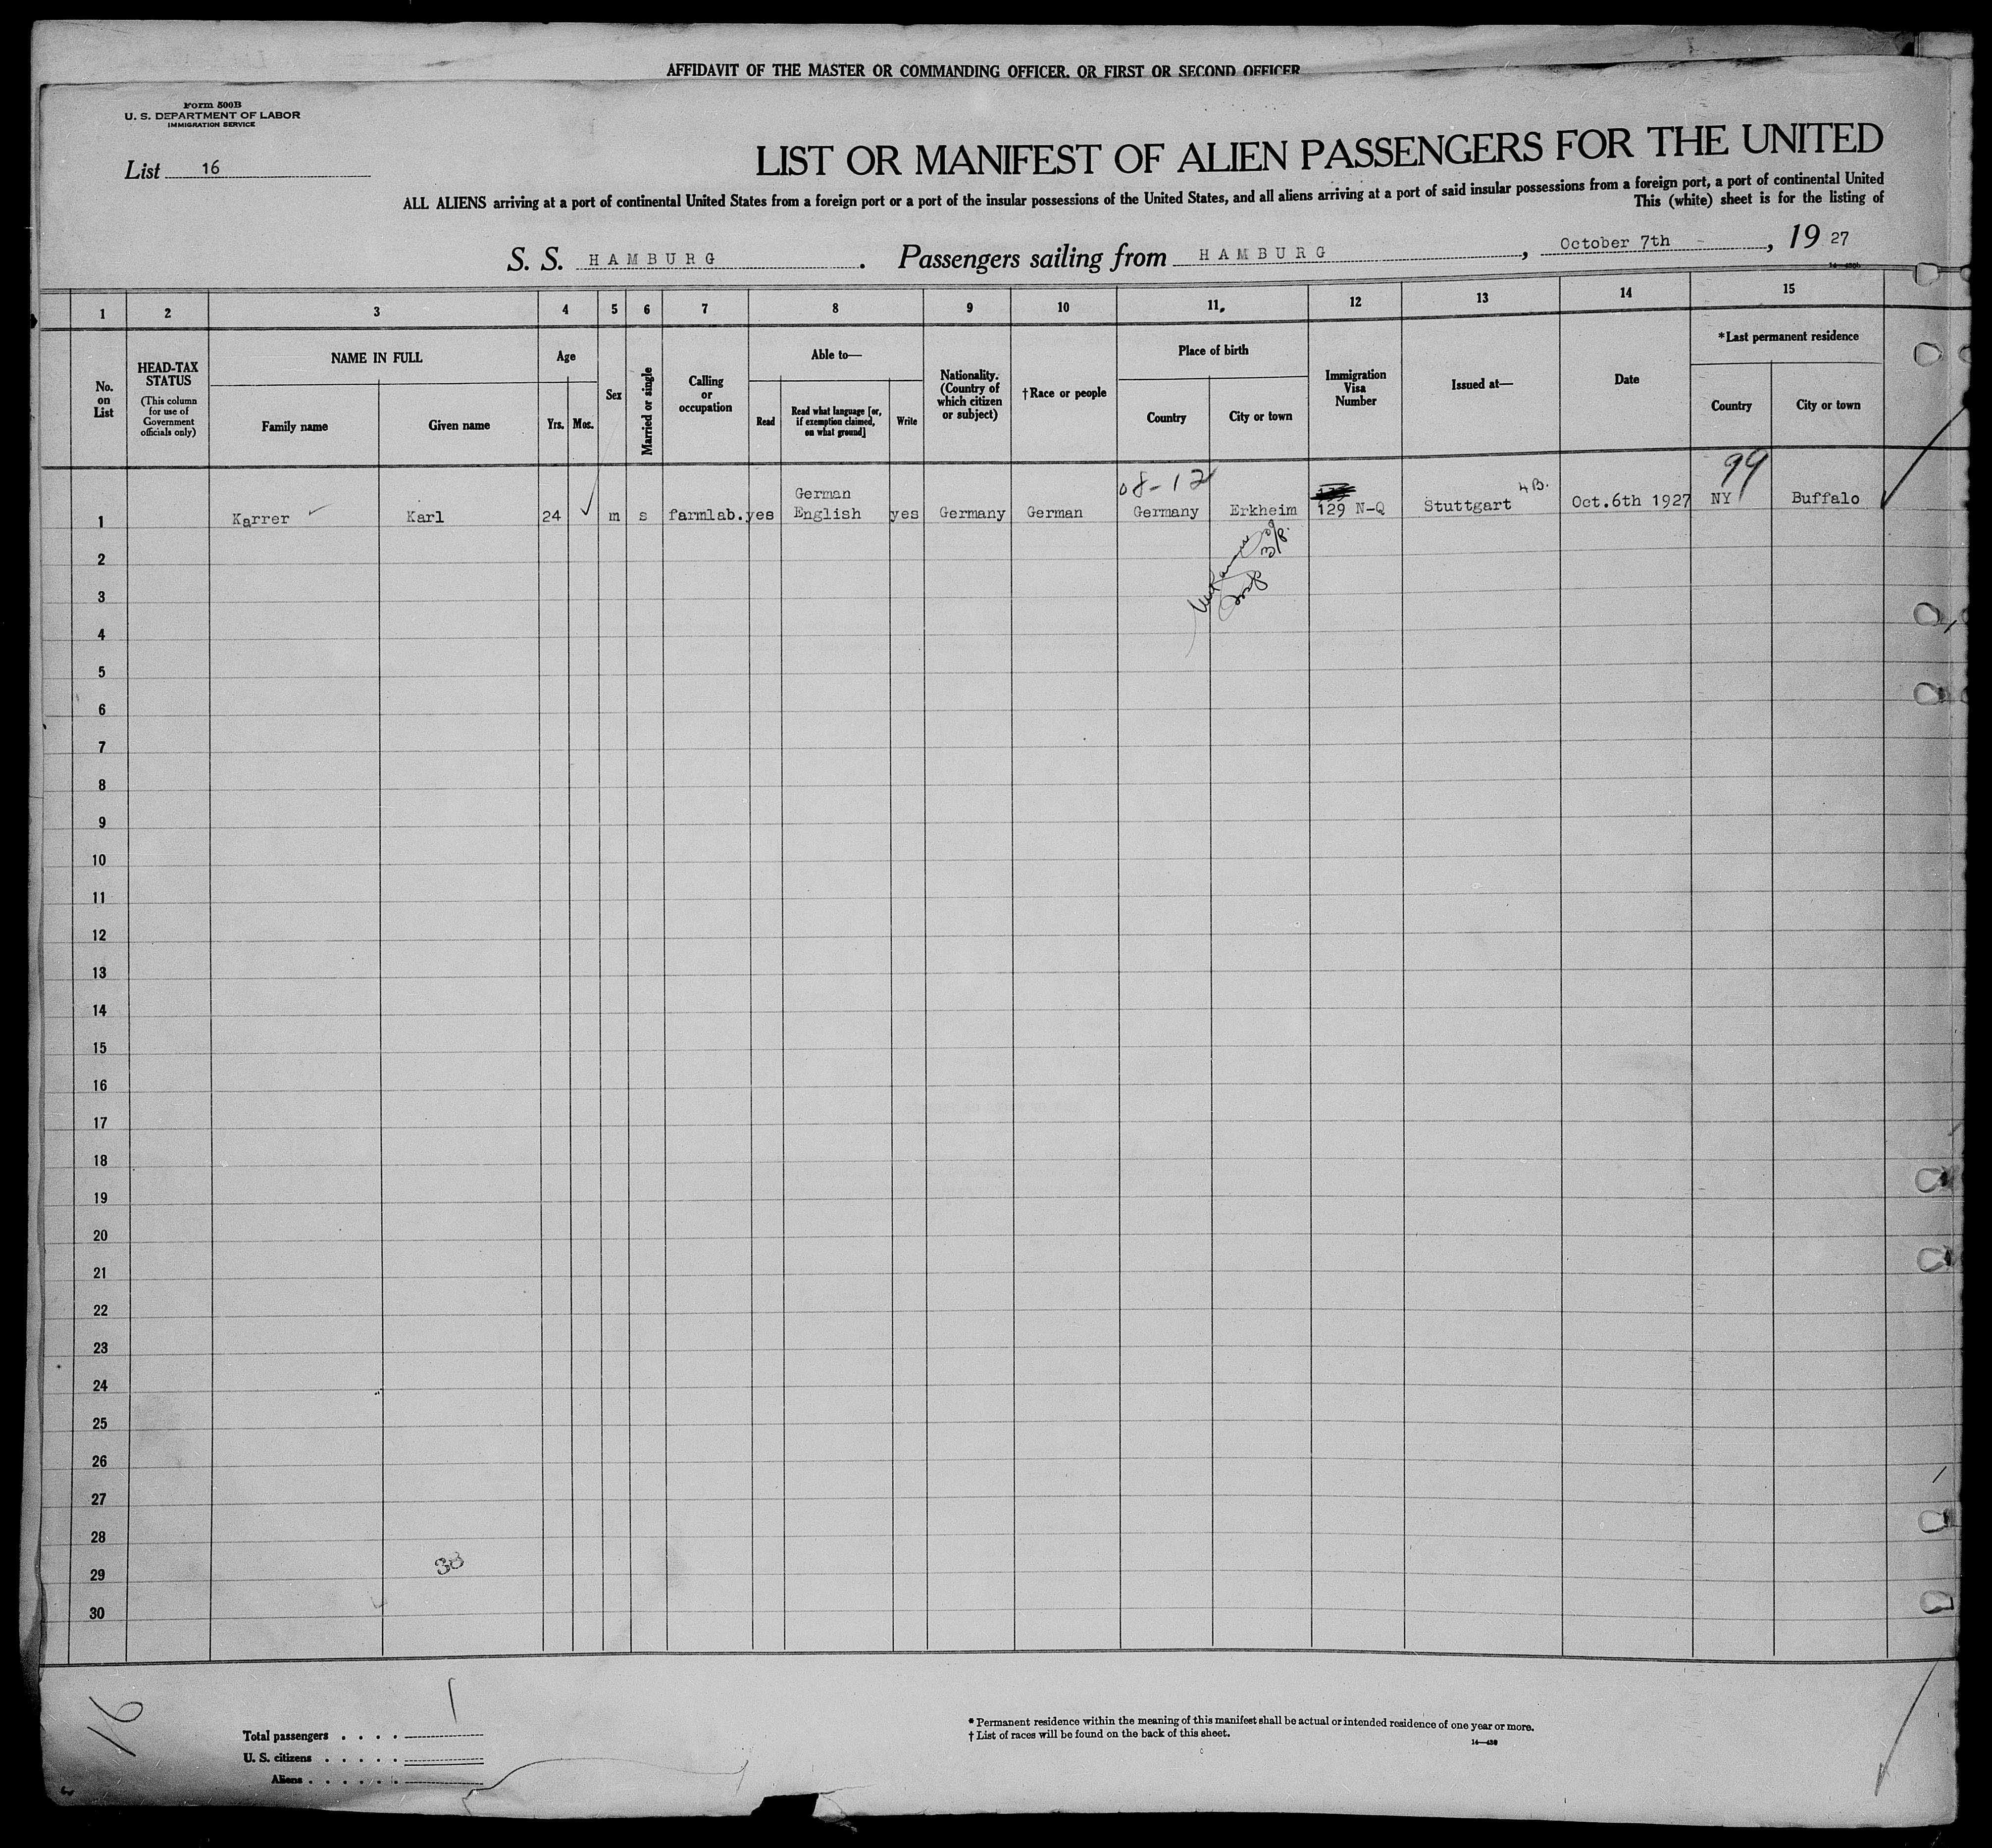 AFFIDAVIT OF THE MASTER OR COMMANDING OFFICER, OR FIRST OR SECOND OFFICER
Form 500B
U. S. DEPARTMENT OF LABOR
IMMIGRATION SERVICE
List 16
LIST OR MANIFEST OF ALIEN PASSENGERS FOR THE UNITED
ALL ALIENS arriving at a port of continental United States from a foreign port or a port of the insular possessions of the United States, and all aliens arriving at a port of said insular possessions from a foreign port, a port of continental United
This (white) sheet is for the listing of
S. S. HAMBURG. Passengers sailing from HAMBURG, October 7th, 1927
1 2 3 4 5 6 7 8 9 10 11 12 13 14 15
No. on List
HEAD-TAX STATUS
(This column for use of Government officials only)
NAME IN FULL
Family name
Given name
Age
Yrs. Mos.
Sex
Married or single
Calling or occupation
Able to—
Read
Read what language [or, if exemption claimed, on what ground]
Write
Nationality. (Country of which citizen or subject)
†Race or people
Place of birth
Country
City or town
Immigration Visa Number
Issued at—
Date
*Last permanent residence
Country
City or town
08-12 99
German 4B.
1 Karrer Karl 24 m s farmlab. yes English yes Germany German Germany Erkheim 129 N-Q Stuttgart Oct.6th 1927 NY Buffalo
3/8.
2
3
4
5
6
7
8
9
10
11
12
13
14
15
16
17
18
19
20
21
22
23
24
25
26
27
28
38
29
30
16
1
Total passengers . . . .
U. S. citizens . . . . .
Aliens . . . . . .
* Permanent residence within the meaning of this manifest shall be actual or intended residence of one year or more.
† List of races will be found on the back of this sheet.